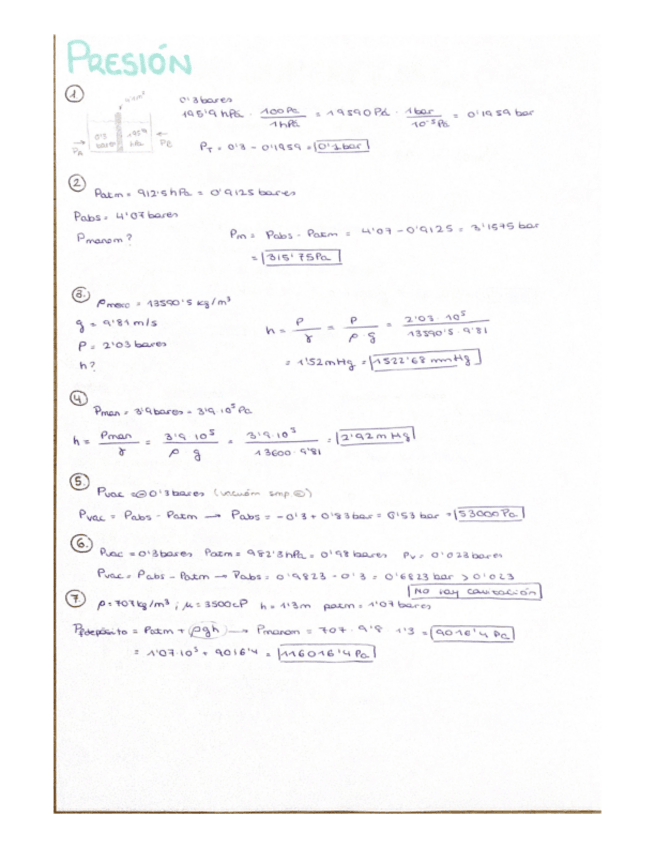 PRESIÓN
1.
0'3 bares
195'9 hPa · 100 Pa / 1 hPa = 19590 Pa · 1 bar / 10⁻⁵ Pa = 0'1959 bar
0'3 bares
PA
PB
PT = 0'3 - 0'1959 = 0'1 bar
2
Patm = 912'5 hPa = 0'9125 bares
Pabs = 4'07 bares
Pmanom?
Pm = Pabs - Patm = 4'07 - 0'9125 = 3'1575 bar
= 315'75 Pa
3.
ρmerc = 13590'5 kg/m³
g = 9'81 m/s
P = 2'03 bares
h?
h = P / γ = P / ρ g = 2'03 · 10⁵ / 13590'5 · 9'81
= 1'52 m Hg = 1522'68 mm Hg
4
Pman = 3'9 bares = 3'9 · 10⁵ Pa
h = Pman / γ = 3'9 · 10⁵ / ρ g = 3'9 · 10⁵ / 13600 · 9'81 = 2'92 m Hg
5.
Pvac = - 0'3 bares (vacuóm smp -)
Pvac = Pabs - Patm → Pabs = -0'3 + 0'83 bar = 0'53 bar = 53000 Pa
6.
Pvac = 0'3 bares Patm = 982'3 hPa = 0'98 bares Pv = 0'023 bares
Pvac = Pabs - Patm → Pabs = 0'9823 - 0'3 = 0'6823 bar > 0'023
No hay cavitación
7
ρ = 707 kg/m³ ; μ = 3500 cP h = 1'3 m patm = 1'07 bares
Pf depósito = Patm + ρgh → Pmanom = 707 · 9'8 · 1'3 = 9016'4 Pa
= 1'07·10⁵ + 9016'4 = 116016'4 Pa